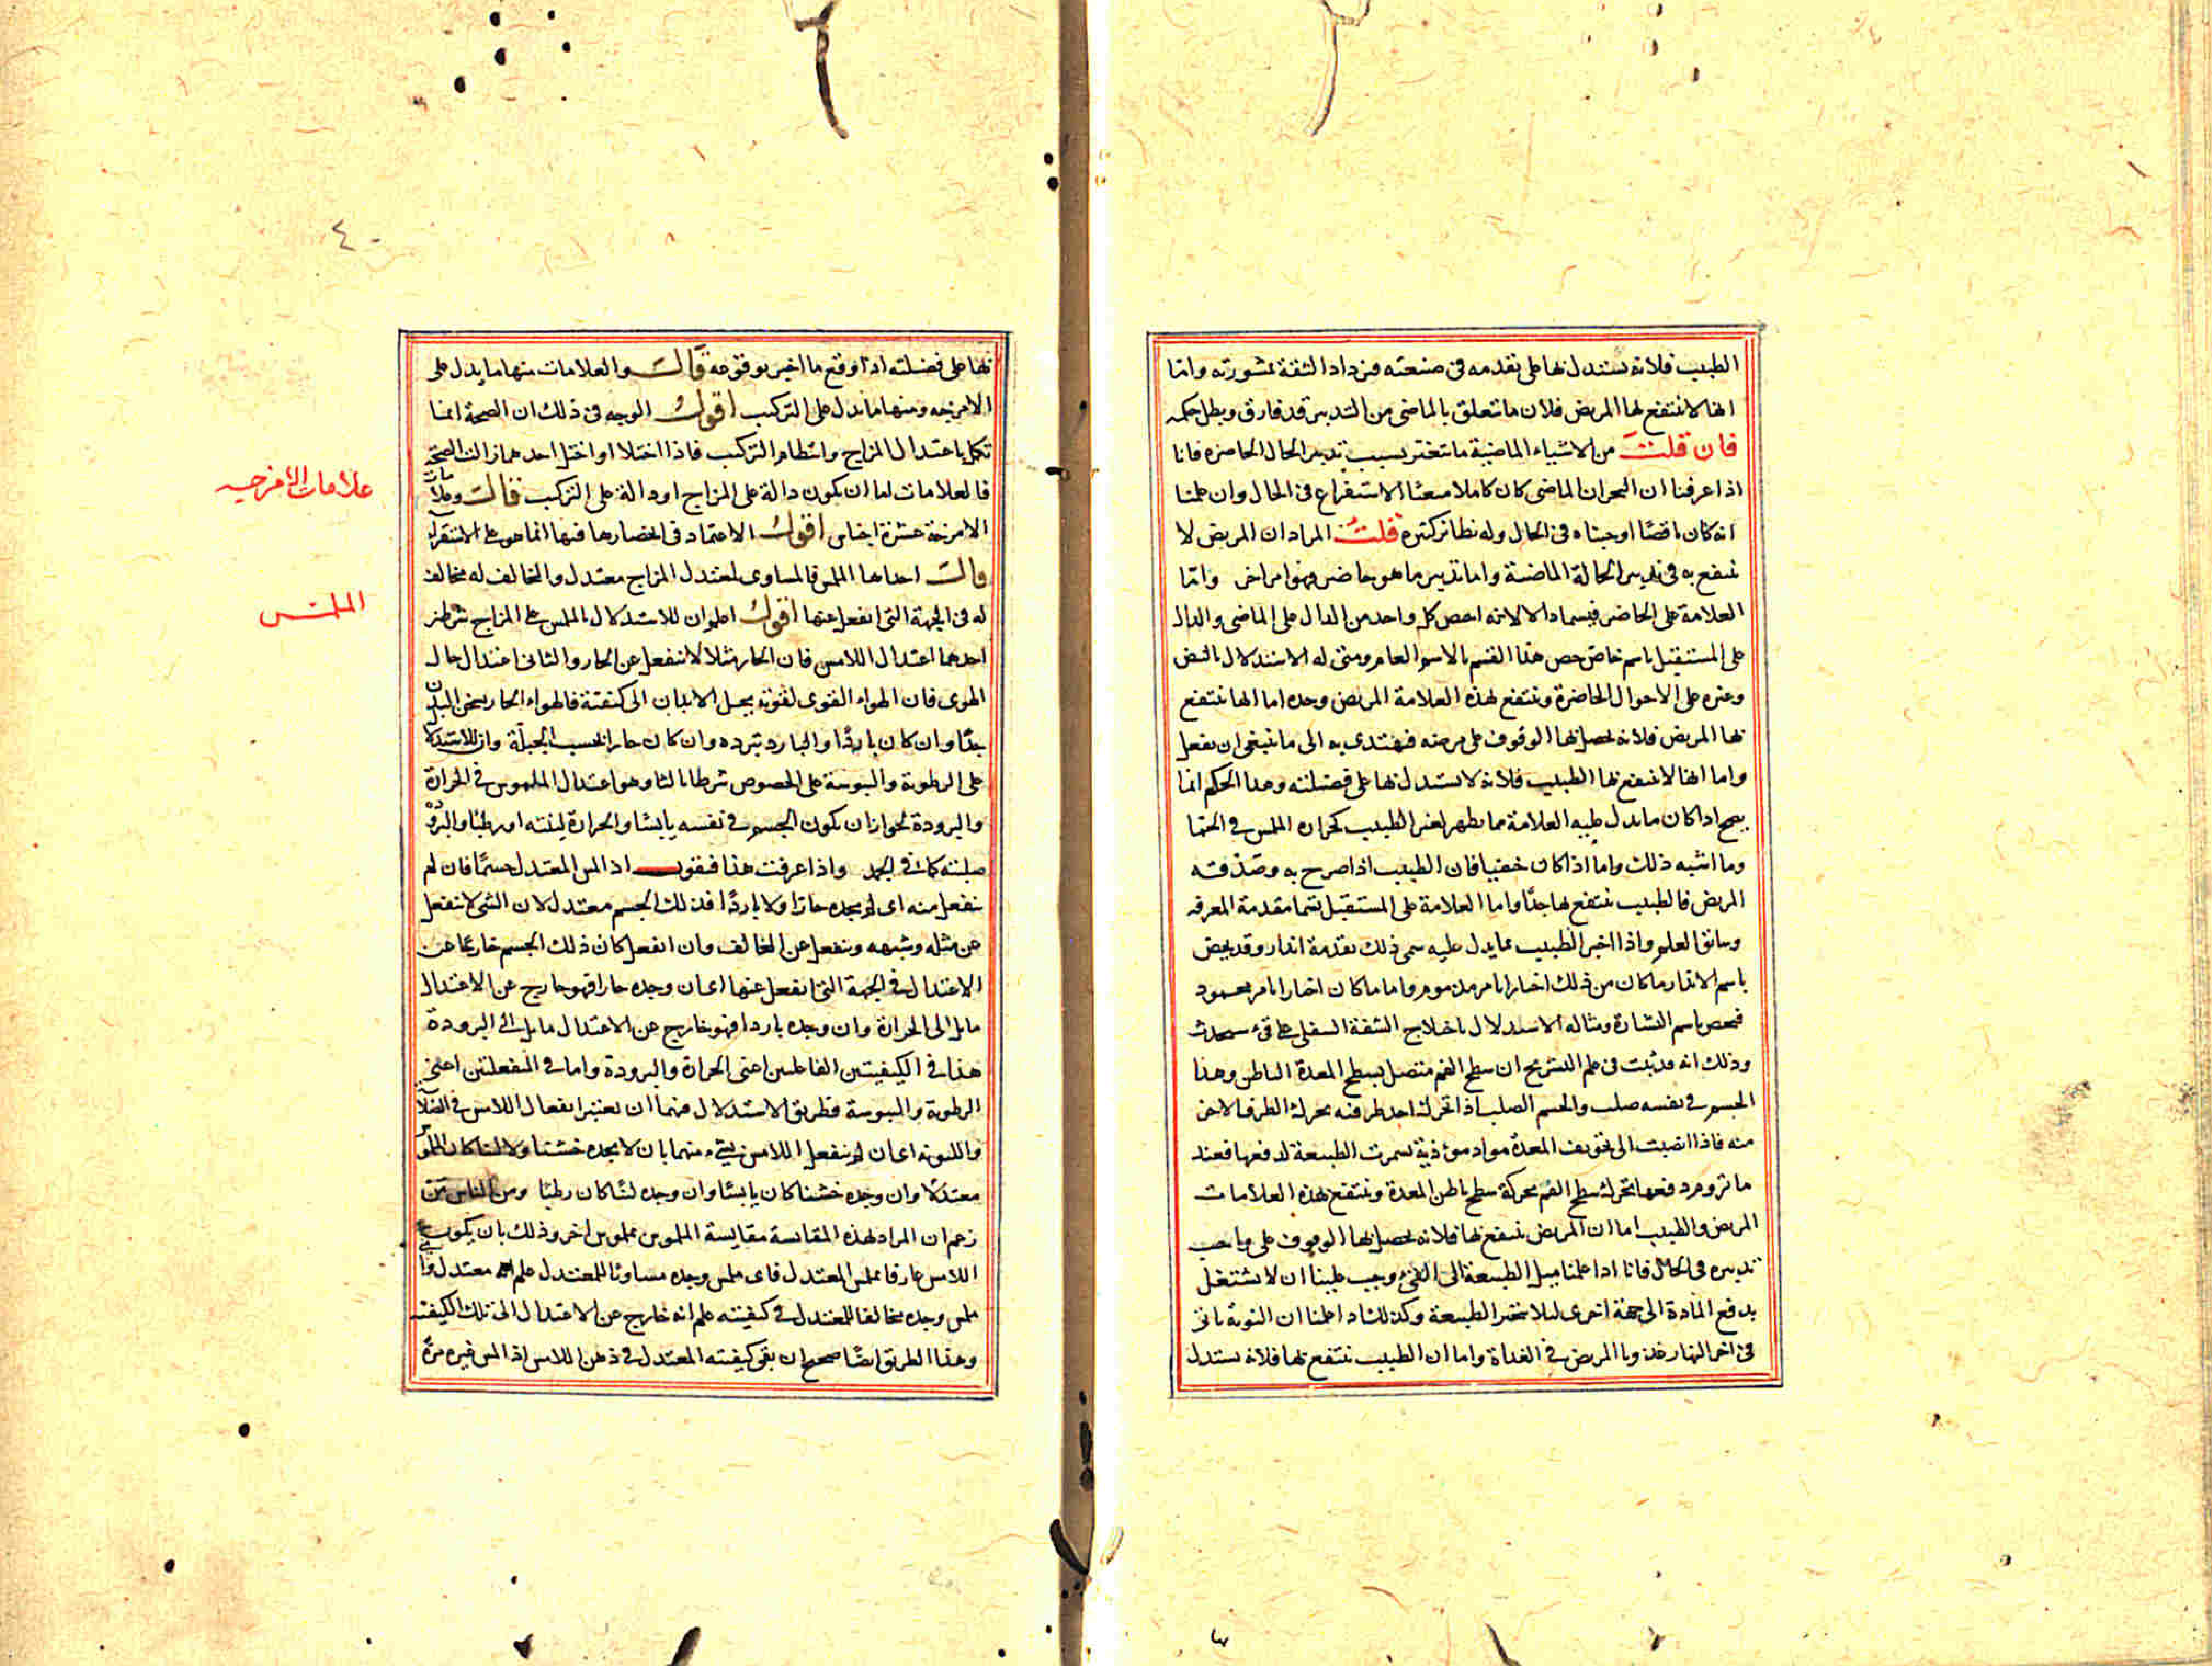 الطبيب فلانه يستدل بها على تقدمه فى صنعته فيزداد الثقة بمشورته واما
انها لا ينتفع بها المريض فلان ما يتعلق بالماضى من التدبير قد فارق وبطل حكمه
فان قلت من الاشياء الماضية ما يتغير بسببه تدبير الحال الحاضره فانا
اذا عرفنا ان البحران الماضى كان كاملا منعنا الاستفراغ فى الحال وان علمنا
انه كان ناقصا اوجبناه فى الحال وله نظائر كثيرة قلت المراد ان المريض لا
ينتفع به فى تدبير الحالة الماضية واما تدبير ما هو حاضر فهو امر اخر واما
العلامة على الحاضر فيسما دالا لانه لما خص كل واحد من الدال على الماضى والدال
على المستقبل باسم خاص خص هذا القسم بالاسم العام ومثاله الاستدلال بالنبض
وغيره على الاحوال الحاضرة وينتفع بهذه العلامة المريض وحده اما انها ينتفع
بها المريض فلانه يحصل بها الوقوف على مرضه فيهتدى به الى ما ينبغى ان يفعل
واما انها لا ينتفع بها الطبيب فلانه لا يستدل بها على فضيلته وهذا الحكم انما
يصح اذا كان ما يدل عليه العلامة مما يظهر لغير الطبيب كحرارة الملمس فى الحما
وما اشبه ذلك واما اذا كان خفيا فان الطبيب اذا صرح به وصدقه
المريض فالطبيب ينتفع بها جدا واما العلامة على المستقبل تسما مقدمة المعرفه
وسابق العلم واذا اخبر الطبيب بما يدل عليه سمى ذلك تقدمة انذار وقد يخص
باسم الانذار ما كان من ذلك اخبارا بامر مذموم واما ما كان اخبارا بامر محمود
فيخص باسم البشارة ومثاله الاستدلال باختلاج الشفة السفلى على قىء سيحدث
وذلك انه قد ثبت فى علم التشريح ان سطح الفم متصل بسطح المعدة الباطن وهذا
الجسم فى نفسه صلب والجسم الصلب اذا تحرك احد طرفيه تحرك الطرف الاخر
منه فاذا انصبت الى تجويف المعدة مواد موذية تشمرت الطبيعة لدفعها فعند
ما تروم دفعها تحرك سطح الفم بحركة سطح باطن المعدة وينتفع بهذه العلامات
المريض والطبيب اما ان المريض ينتفع بها فلانه يحصل بها الوقوف على واجب
تدبيره فى الحال فانا اذا علمنا ميل الطبيعة الى القىء وجب علينا ان لا نشتغل
بدفع المادة الى جهة اخرى ليلا نحير الطبيعة وكذلك اذا علمنا ان النوبة ياتى
فى اخر النهار غذونا المريض فى الغداة واما ان الطبيب ينتفع بها فلانه يستدل
٤٠
بها على فضيلته اذا وقع ما اخبر بوقوعه قال والعلامات منها ما يدل على
الامزجه ومنها ما يدل على التركيب اقول الوجه فى ذلك ان الصحة انما
تكمل باعتدال المزاج وانتظام التركيب فاذا اختلا او اختل احدهما زالت الصحة
فالعلامات اما ان يكون دالة على المزاج او دالة على التركيب قال وعلامات
الامزجة عشرة اجناس اقول الاعتماد فى انحصارها فيها انما هو على الاستقراء
قال احدها الملمس فالمساوى لمعتدل المزاج معتدل والمخالف له مخالف
له فى الجهة التى انفعل عنها اقول اعلم ان للاستدلال بالملمس على المزاج شرطين
احدهما اعتدال اللامس فان الحار مثلا لا ينفعل عن الحار والثانى اعتدال حال
الهوى فان الهواء القوى لقوته يحيل الابدان الى كيفيته فالهواء الحار يسخن البدن
جدا وان كان باردا والبارد يبرده وان كان حارا بحسب الجبلة وان للاستدلال
على الرطوبة واليبوسة على الخصوص شرطا ثالثا وهو اعتدال الملموس فى الحرارة
والبرودة لجواز ان يكون الجسم فى نفسه يابسا والحرارة لينته او رطبا والبرودة
صلبته كما فى الجمد واذا عرفت هذا فنقول اذا لمس المعتدل جسما فان لم
ينفعل منه اى لم يجده حارا ولا باردا فذلك الجسم معتدل لان الشى لا ينفعل
عن مثله وشبهه وينفعل عن المخالف وان انفعل كان ذلك الجسم خارجا عن
الاعتدال فى الجهة التى انفعل عنها اى ان وجده حارا فهو خارج عن الاعتدال
مايل الى الحرارة وان وجده باردا فهو خارج عن الاعتدال مايل الى البرودة
هذا فى الكيفيتين الفاعلتين اعنى الحرارة والبرودة واما فى المنفعلتين اعنى
الرطوبة واليبوسة فطريق الاستدلال منهما ان نعتبر انفعال اللامس فى الصلابة
واللينونه اى ان لم ينفعل اللامس بشىء منهما بان لا يجده خشنا ولا لينا كان الملموس
معتدلا وان وجده خشنا كان يابسا وان وجده لينا كان رطبا ومن الناس من
زعم ان المراد بهذه المقايسة مقايسة الملموس بملموس اخر وذلك بان يكون
اللامس عارفا بملمس المعتدل فاى ملمس وجده مساويا للمعتدل علم انه معتدل واى
ملمس وجده مخالفا للمعتدل فى كيفيته علم انه خارج عن الاعتدال الى تلك الكيفية
وهذا الطريق ايضا صحيح ان بقى كيفيته المعتدل فى ذهن اللامس اذا لمس غيره مرة
علامات الامزجيه
الملمس